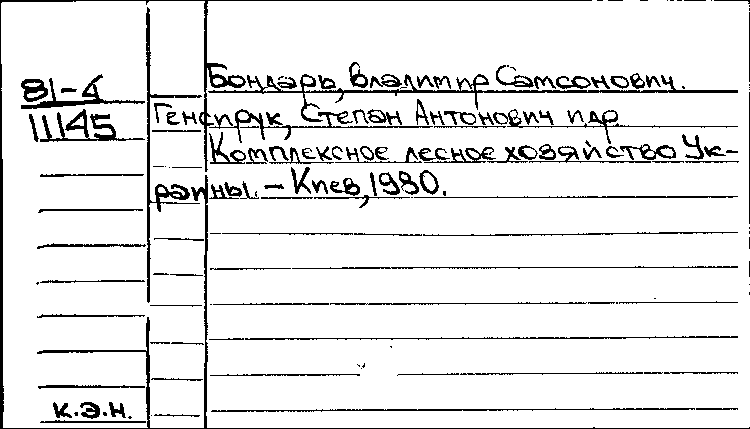 Бондарь, Владимир Самсонович.
81-4
11145
Генсирук, Степан Антонович и др
Комплексное лесное хозяйство Ук-
раины. - Киев, 1980.
к.э.н.